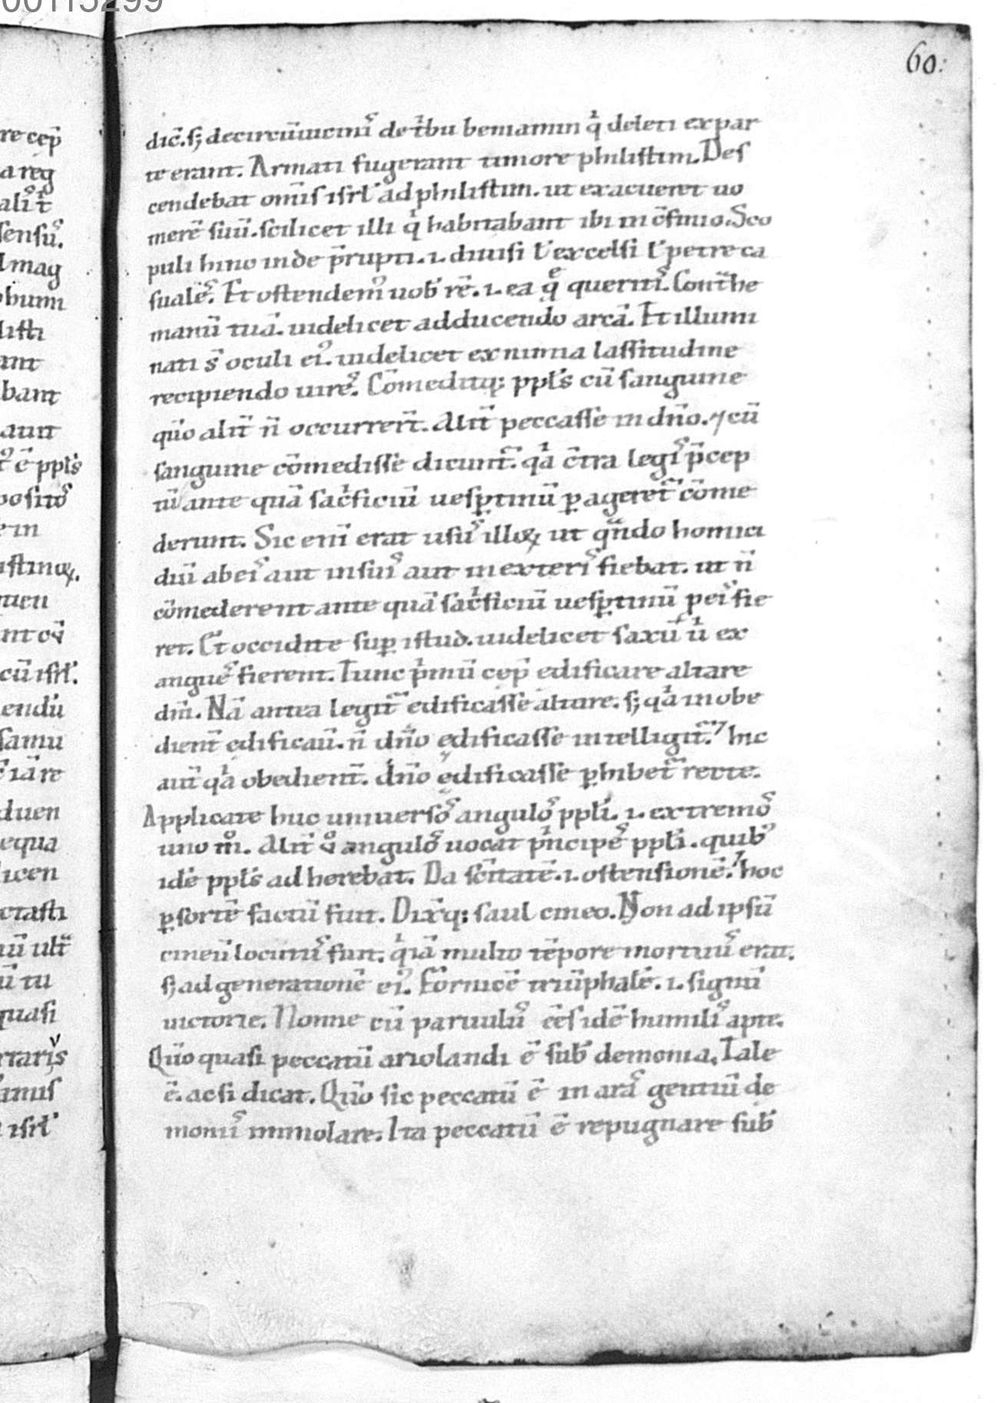 00115299
60.
dic̄. s; de circūuicinis de t'bu beniamin q' deleti ex par
te erant. Armati fugerant timore philistim. Des
cendebat om̄is isrl' ad philistim. ut exacueret uo
merē suū. scilicet illi q' habitabant ibi in c̄finio. Sco
puli hinc inde p̄rupti .i. diuisi ł excelsi ł petre ca
suales. Et ostendem' uob' rē .i. ea q̄ queritis. Cont̄he
manū tuā. uidelicet adducendo arcā. Et illumi
nati s̄ oculi ei'. uidelicet ex nimia lassitudine
recipiendo uires. Cōmeditq; ppl's cū sanguine
qūo alit̄ n̄ occurrer̄t. Alit̄ peccasse in dn̄o. ⁊ cū
sanguine cōmedisse dicunt̄. q'a c̄tra legis p̄cep
tū ante quā sac̄ficiū uesp̱tinū p̱ageret̄ cōme
derunt. Sic enī erat usus illoꝝ ut q̄ndo homici
diū ab eis aut in suis aut in exteris fiebat. ut n̄
cōmederent ante quā sac̄ficiū uesp̱tinū p̱ eis fie
ret. Et occidite sup̱ istud. uidelicet saxū ū ex
angues fierent. Tunc p'mū cep̄ edificare altare
dn̄i. Nā antea legit̄ edificasse altare. s; q'a inobe
dient̄ edificaū. n̄ dn̄o edificasse intelligit̄. hic
aut̄ q'a obedient̄. dn̄o edificasse p̱hibet̄ recte.
Applicate huc uniuersos angulos ppl'i .i. extremos
uno m̊. Alit̄ ů angulos uocat p'ncipes ppl'i. quib'
idē ppl's adherebat. Da sc̄itatē .i. ostensionē. hoc
p̱ sortē factū fuit. Dix̄q; saul cineo. Non ad ipsū
cineū locutus fuit. q'a multo tēpore mortuus erat.
s; ad generationē ei'. Fornicē triūphalē .i. signū
uictorie. Nonne cū paruulus ēēs idē humilis apte.
Qūo quasi peccatū ariolandi ē sub' demonia. Tale
ē. ac si dicat. Qūo sic peccatū ē in aras gentiū de
moniis immolare. Ita peccatū ē repugnare sub'